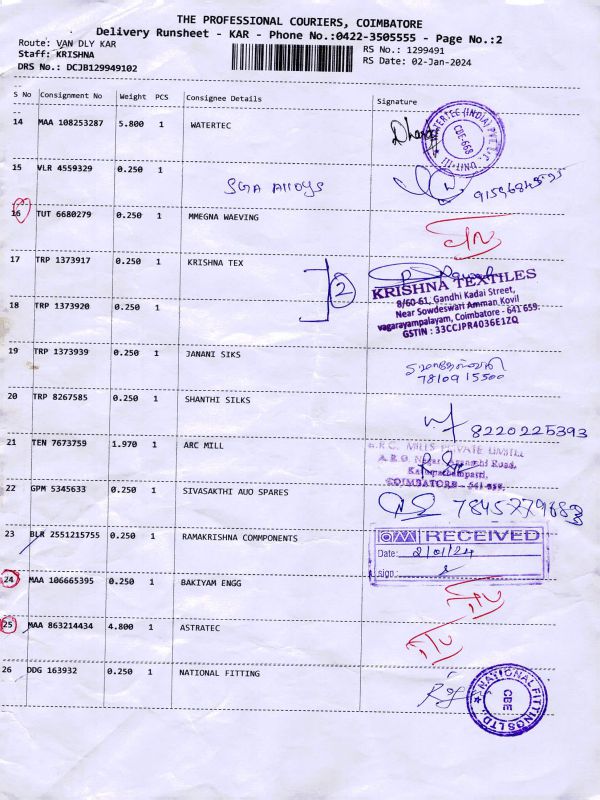 THE PROFESSIONAL COURIERS, COIMBATORE
Delivery Runsheet - KAR - Phone No.:0422-3505555 - Page No.:2
Route: VAN DLY KAR
Staff: KRISHNA
DRS No.: DCJB129949102
RS No.: 1299491
RS Date: 02-Jan-2024
S No Consignment No Weight PCS Consignee Details Signature
14 MAA 108253287 5.800 1 WATERTEC
CBE-668
15 VLR 4559329 0.250 1
SGA Alloys
16 TUT 6680279 0.250 1 MMEGNA WAEVING
17 TRP 1373917 0.250 1 KRISHNA TEX
2
KRISHNA TEXTILES
8/60-61, Gandhi Kadai Street,
Near Sowdeswari Amman Kovil
vagarayampalayam, Coimbatore - 641 659.
GSTIN : 33CCJPR4036E1ZQ
18 TRP 1373920 0.250 1
19 TRP 1373939 0.250 1 JANANI SIKS
7810915500
20 TRP 8267585 0.250 1 SHANTHI SILKS
8220225393
21 TEN 7673759 1.970 1 ARC MILL
MILLS PRIVATE LIMITED
COIMBATORE - 641 659.
22 GPM 5345633 0.250 1 SIVASAKTHI AUO SPARES
23 BLR 2551215755 0.250 1 RAMAKRISHNA COMMPONENTS
RECEIVED
Date: 2/01/24
sign:
24 MAA 106665395 0.250 1 BAKIYAM ENGG
25 MAA 863214434 4.800 1 ASTRATEC
26 DDG 163932 0.250 1 NATIONAL FITTING
NATIONAL FITTINGS LTD
CBE